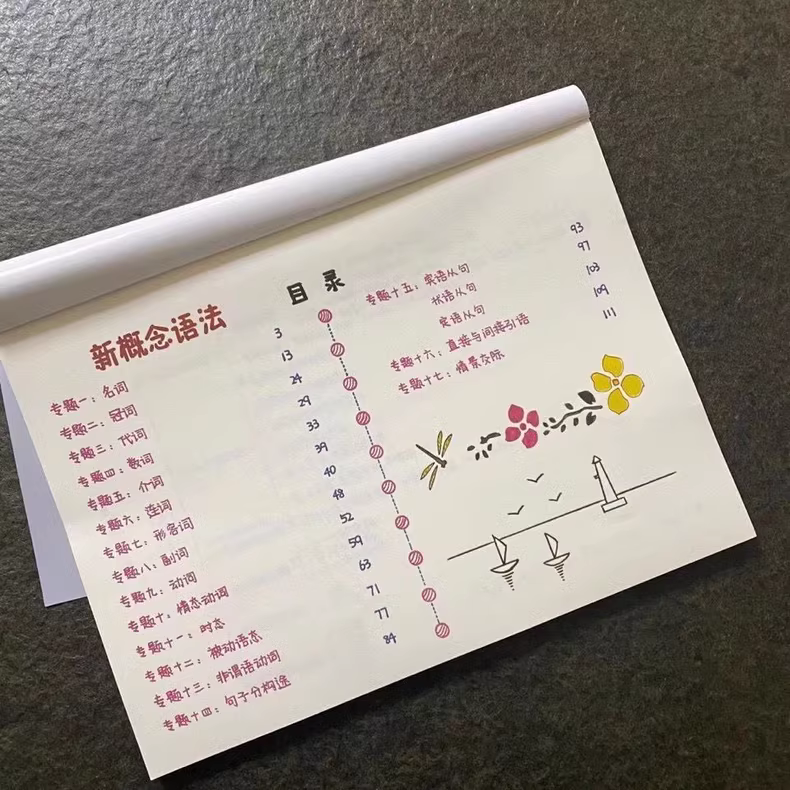 目录
新概念语法
专题一：名词 3
专题二：冠词 13
专题三：代词 24
专题四：数词 29
专题五：介词 33
专题六：连词 39
专题七：形容词 40
专题八：副词 48
专题九：动词 52
专题十：情态动词 59
专题十一：时态 63
专题十二：被动语态 71
专题十三：非谓语动词 77
专题十四：句子分构途 84
专题十五：宾语从句 93
状语从句 97
定语从句 103
专题十六：直接与间接引语 109
专题十七：情景交际 111